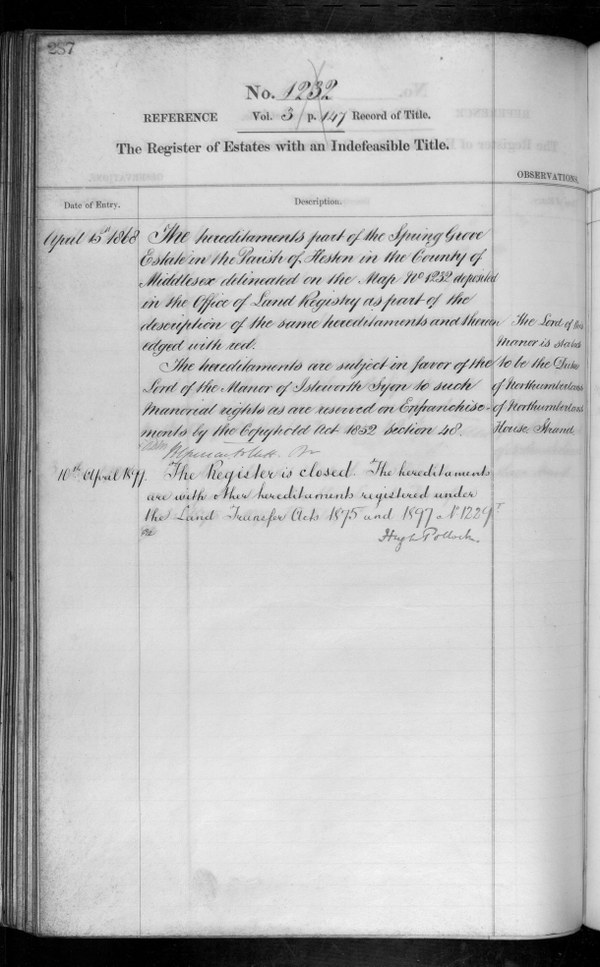 287
No. 1232
REFERENCE Vol. 3 p. 147 Record of Title.
The Register of Estates with an Indefeasible Title.
OBSERVATIONS.
Date of Entry.
Description.
April 15th 1868
The hereditaments part of the Spring Grove
Estate in the Parish of Heston in the County of
Middlesex delineated on the Map No 1232 deposited
in the Office of Land Registry as part of the
description of the same hereditaments and thereon
edged with red.
The hereditaments are subject in favor of the
Lord of the Manor of Isleworth Syon to such
Manorial rights as are reserved on Enfranchise-
ments by the Copyhold Act 1852 Section 48.
The Lord of this
Manor is stated
to be the Duke
of Northumberland
of Northumberland
House Strand
10th April 1899.
The Register is closed. The hereditaments
are with other hereditaments registered under
the Land Transfer Acts 1875 and 1897 No 1229
Hugh Pollock.